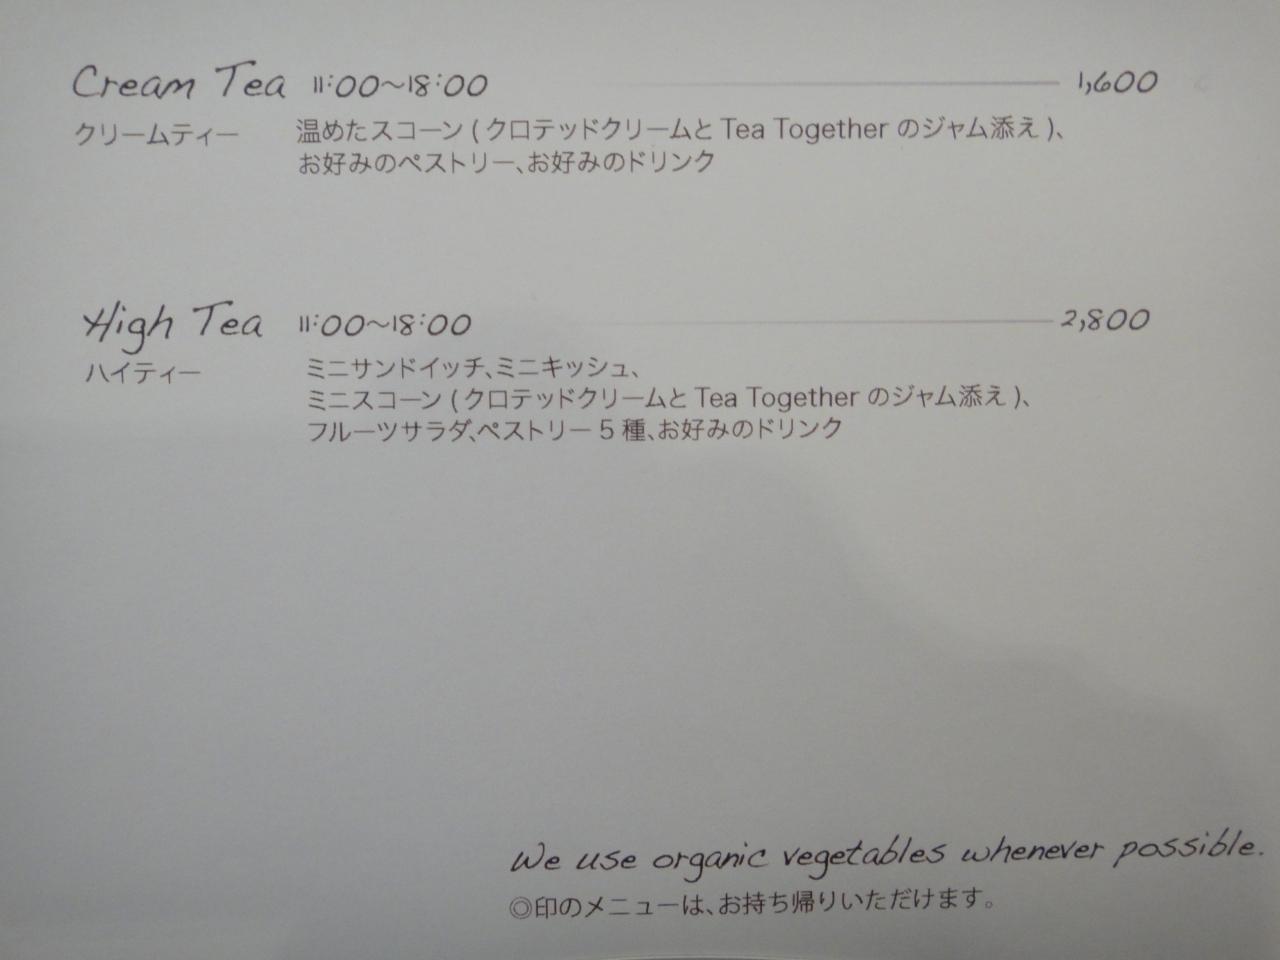 Cream Tea 11:00～18:00 1,600
クリームティー 温めたスコーン (クロテッドクリームと Tea Together のジャム添え)、
お好みのペストリー、お好みのドリンク
High Tea 11:00～18:00 2,800
ハイティー ミニサンドイッチ、ミニキッシュ、
ミニスコーン (クロテッドクリームと Tea Together のジャム添え)、
フルーツサラダ、ペストリー 5 種、お好みのドリンク
We use organic vegetables whenever possible.
◎印のメニューは、お持ち帰りいただけます。